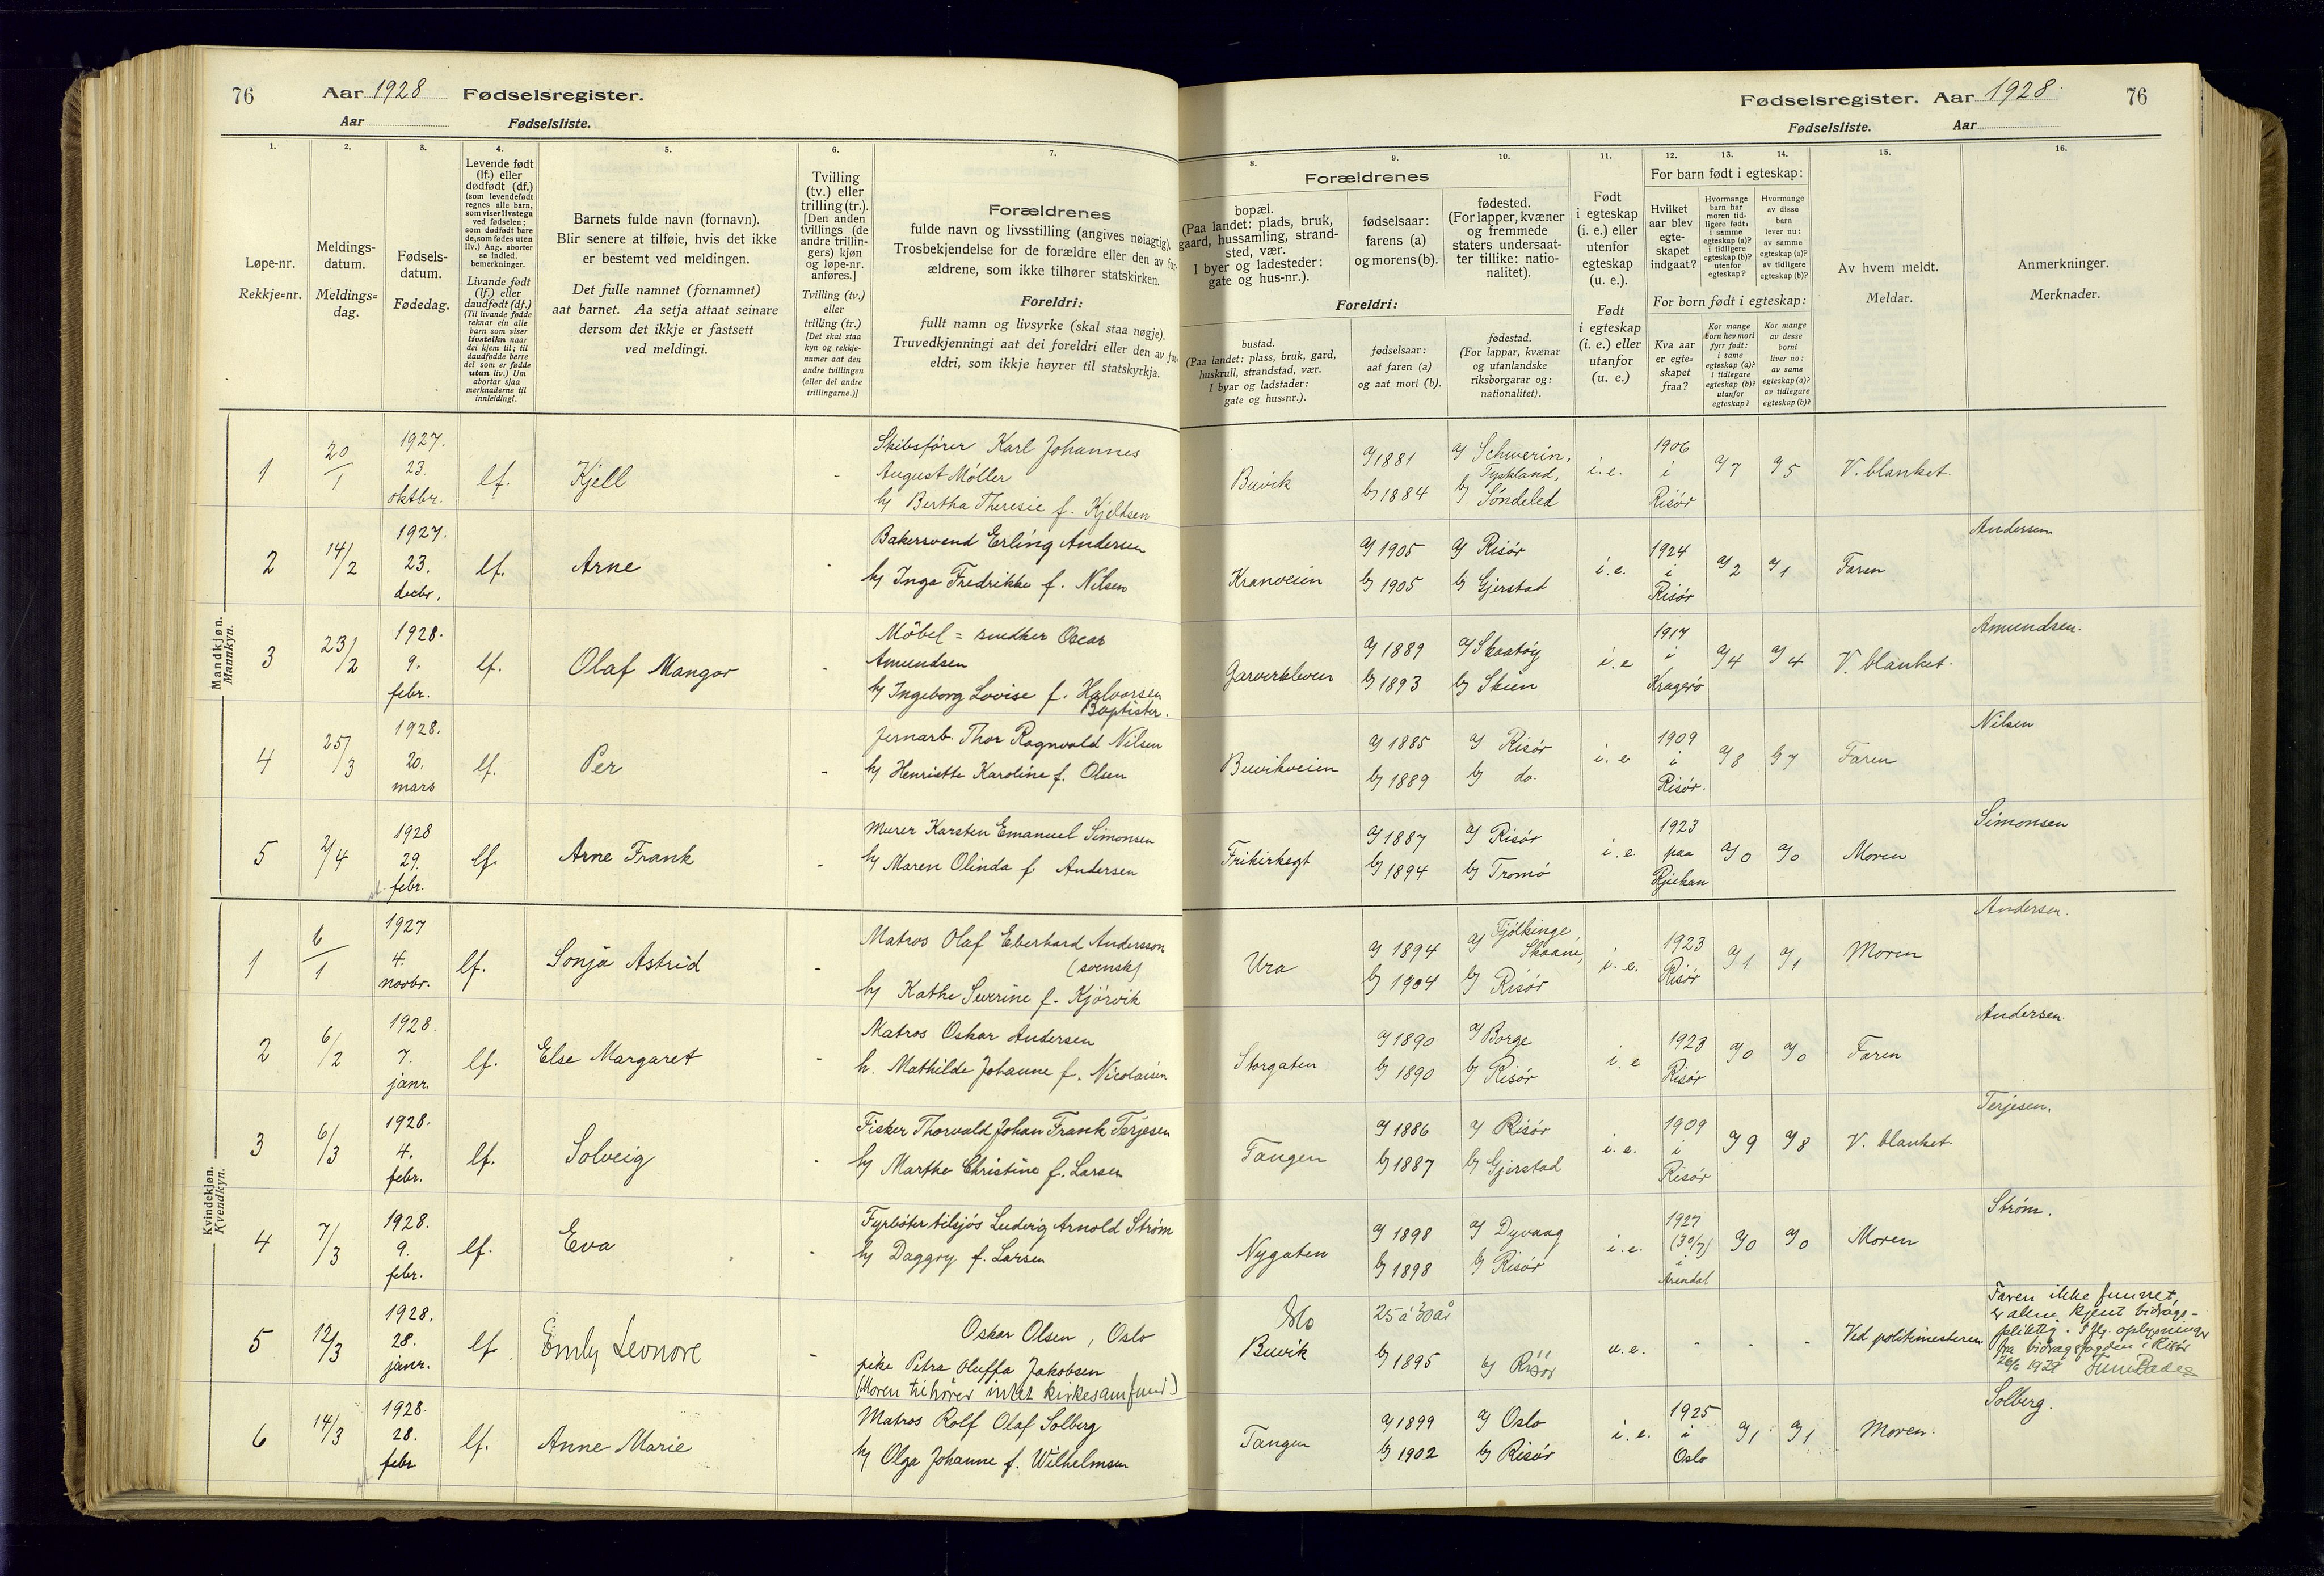 76 Aar 1928 Fødselsregister.
Aar Fødselsliste.
1.
2.
3.
4.
5.
6.
7.
Løpe-nr.
Rekkje=nr.
Meldings-
datum.
Meldings=
dag.
Fødsels-
datum.
Fødedag.
Levende født
(lf.) eller
dødfødt (df.)
(som levendefødt
regnes alle barn,
som viser livstegn
ved fødselen;
som dødfødt bare
de, som fødes uten
liv.) Ang. aborter
se indled.
bemerkninger.
Livande født
(lf.) eller
daudfødt (df.)
(Til livande fødde
reknar ein alle
barn som viser
livsteikn naar
dei kjem til; til
daudfødde berre
dei som er fødde
utan liv.) Um
abortar sjaa
merknaderne til
innleidingi.
Barnets fulde navn (fornavn).
Blir senere at tilføie, hvis det ikke
er bestemt ved meldingen.
Det fulle namnet (fornamnet)
aat barnet. Aa setja attaat seinare
dersom det ikkje er fastsett
ved meldingi.
Tvilling
(tv.) eller
trilling (tr.).
[Den anden
tvillings (de
andre trillin-
gers) kjøn
og løpe-nr.
anføres.]
Tvilling (tv.)
eller
trilling (tr.)
[Det skal staa
kyn og rekkje-
numer aat den
andre tvillingen
(eller dei andre
trillingarne.)]
Forældrenes
fulde navn og livsstilling (angives nøiagtig).
Trosbekjendelse for de forældre eller den av for-
ældrene, som ikke tilhører statskirken.
Foreldri:
fullt namn og livsyrke (skal staa nøgje).
Truvedkjenningi aat dei foreldri eller den av for-
eldri, som ikkje høyrer til statskyrkja.
Mandkjøn.
Mannkyn.
1 20/1 1927. 23. oktbr. lf. Kjell - Skibsfører Karl Johannes
August Møller
h/ Bertha Theresie f. Kjeldsen
2 14/2 1927. 23. decbr. lf. Arne - Bakersvend Erling Andersen
h/ Inga Fredrikke f. Nilsen
3 23/2 1928. 9. febr. lf. Olaf Mangor - Møbel = snedker Oscar
Amundsen
h/ Ingeborg Lovise f. Halvorsen
Baptister.
4 25/3 1928. 20. mars lf. Per - Jernarb. Thor Ragnvald Nilsen
h/ Henriette Karoline f. Olsen
5 2/4 1928 29. febr. lf. Arne Frank - Murer Karsten Emanuel Simonsen
h/ Maren Olinda f. Andersen
Kvindekjøn.
Kvendkyn.
1 6/1 1927 4. novbr. lf. Sonja Astrid - Matros Olaf Eberhard Andersson
(svensk)
h/ Kathe Severine f. Kjørvik
2 6/2 1928. 7. janr. lf. Else Margaret - Matros Oskar Andersen
h. Mathilde Johanne f. Nicolaisen
3 6/3 1928. 4. febr. lf. Solveig - Fisker Thorvald Johan Frank Terjesen
h/ Marthe Christine f. Larsen
4 7/3 1928. 9. febr. lf. Eva - Fyrbøter tilsjøs Ludvig Arnold Strøm
h/ Dagny f. Larsen
5 12/3 1928. 28. janr. lf. Emly Leonore - Oskar Olsen, Oslo
pike Petra Oluffa Jakobsen
(Moren tilhører intet kirkesamfund)
6 14/3 1928. 28. febr lf. Anne Marie Matros Rolf Olaf Solberg
h/ Olga Johanne f. Wilhelmsen
Fødselsregister. Aar 1928. 76
Fødselsliste. Aar
8.
9.
10.
11.
12.
13.
14.
15.
16.
Forældrenes
bopæl.
(Paa landet: plads, bruk,
gaard, hussamling, strand-
sted, vær.
I byer og ladesteder:
gate og hus-nr.).
fødselsaar:
farens (a)
og morens (b).
fødested.
(For lapper, kvæner
og fremmede
staters undersaat-
ter tillike: natio-
nalitet).
Foreldri:
bustad.
(Paa landet: plass, bruk, gard,
huskrull, strandstad, vær.
I byar og ladstader:
gate og hus=nr.).
fødselsaar:
aat faren (a)
og aat mori (b).
fødestad.
(For lappar, kvænar
og utanlandske
riksborgarar og:
nationalitet).
Født
i egteskap
(i. e.) eller
utenfor
egteskap
(u. e.).
Født
i egteskap
(i. e.) eller
utanfor
(u. e.)
For barn født i egteskap:
Hvilket
aar blev
egte-
skapet
indgaat?
Hvormange
barn har
moren tid-
ligere født:
i samme
egteskap (a)?
i tidligere
egteskap (b)?
utenfor
egteskap?
Hvormange
av disse
barn
lever nu:
av samme
egteskap (a)?
av tidligere
egteskap (b)?
For born født i egteskap:
Kva aar
er egte=
skapet
fraa?
Kor mange
born hev mori
fyrr født:
i same
egteskap (a)?
i tidlegare
egteskap (b)?
utanfor
egteskap?
Kor mange
av desse
borni
liver no:
av same
egteskap (a)?
av tidlegare
egteskap (b)?
Av hvem meldt.
Meldar.
Anmerkninger.
Merknader.
Buvik a/ 1881 b/ 1884 a/ Schwerin, Tyskland, b/ Søndeled i. e. 1906 i Risør a/ 7 a/ 5 V. blanket.
Kranveien a/ 1905 b/ 1905 a/ Risør b/ Gjerstad i. e. 1924 i Risør a/ 2 a/ 1 Faren Andersen
Garverkleven a/ 1889 b/ 1893 a/ Skaatøy b/ Skien i. e 1917 i Kragerø a/ 4 a/ 4 V. blanket. Amundsen.
Buvikveien a/ 1885 b/ 1889 a/ Risør b/ do. i. e 1909 i Risør. a/ 8 a/ 7 Faren Nilsen
Frikirkegt a/ 1887 b/ 1894 a/ Risør b/ Tromø i. e. 1923 paa Rjukan a/ 0 a/ 0 Moren Simonsen
Ura a/ 1894 b/ 1904 a/ Fjölkinge Skaane, b/ Risør i. e. 1923 Risør a/ 1 a/ 1 Moren Andersen.
Storgaten a/ 1890 b/ 1890 a/ Borge b/ Risør i. e 1923 Risør a/ 0 a/ 0 Faren Andersen.
Tangen a/ 1886 b/ 1887 a/ Risør b/ Gjerstad i. e. 1909 i Risør a/ 9 a/ 8 V. blanket. Terjesen.
Nygaten a/ 1898 b/ 1898 a/ Dyvaag b/ Risør i. e. 1927 (30/7) i Arendal a/ 0 a/ 0 Moren Strøm.
Buvik 25 à 30 år b/ 1895 b/ Risør u. e. - - - Ved politimesteren
Faren ikke funnet,
er alene kjent bidrags-
pliktig. Iflg. oplysninger
fra bidragsfogden i Risør
Tangen a/ 1899 b/ 1902 a/ Oslo b/ Risør i. e. 1925 i Oslo a/ 1 a/ 1 Moren. Solberg.